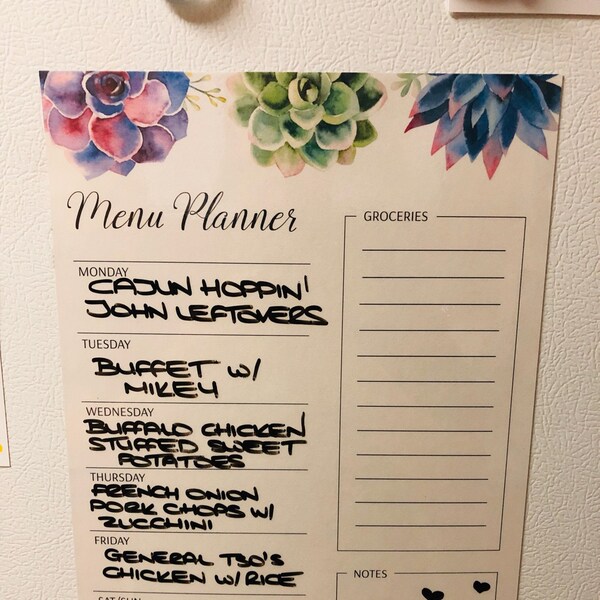 Menu Planner
GROCERIES
MONDAY
CAJUN HOPPIN'
JOHN LEFTOVERS
TUESDAY
BUFFET W/
MIKEY
WEDNESDAY
BUFFALO CHICKEN
STUFFED SWEET
POTATOES
THURSDAY
FRENCH ONION
PORK CHOPS W/
ZUCCHINI
FRIDAY
GENERAL TSO'S
CHICKEN W/ RICE
NOTES
SAT/SUN